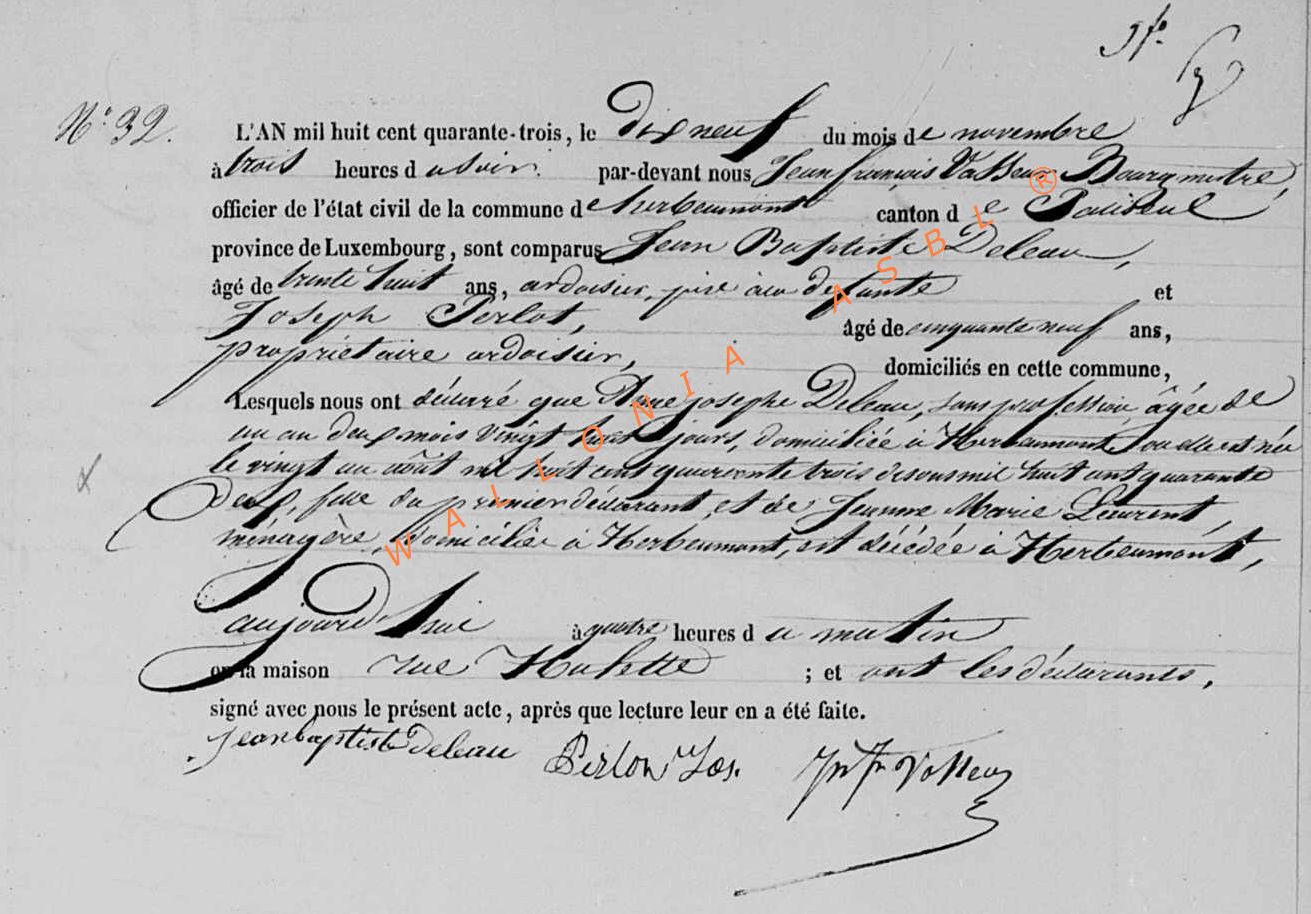 9fo
No 32.
L'AN mil huit cent quarante-trois, le dix neuf du mois de novembre
à trois heures du soir. par-devant nous Jean françois Vasseur Bourgmetre,
officier de l'état civil de la commune de herbeumont canton de Paliseul
province de Luxembourg, sont comparus Jean Baptiste Deleau,
âgé de trente huit ans, ardoisier, père à la defunte et
Joseph Perlot, âgé de cinquante neuf ans,
propriétaire ardoisier, domiciliés en cette commune,
Lesquels nous ont déclaré que Anne josephe Deleau, sans profession, âgée de
un an deux mois vingt huit jours, domiciliée à Herbeumont, ou elle est née
le vingt un août mil huit cent quarante trois disons mil huit cent quarante
Deux, fille du premier déclarant, et de Jeanne Marie Laurent,
ménagère, domiciliée à Herbeumont, est décédée à Herbeumont,
aujourd'hui à quatre heures du matin
en la maison rue Hulette ; et ont les déclarants,
signé avec nous le présent acte, après que lecture leur en a été faite.
Jean baptiste deleau Jos.
WALLONIA ASBL ®